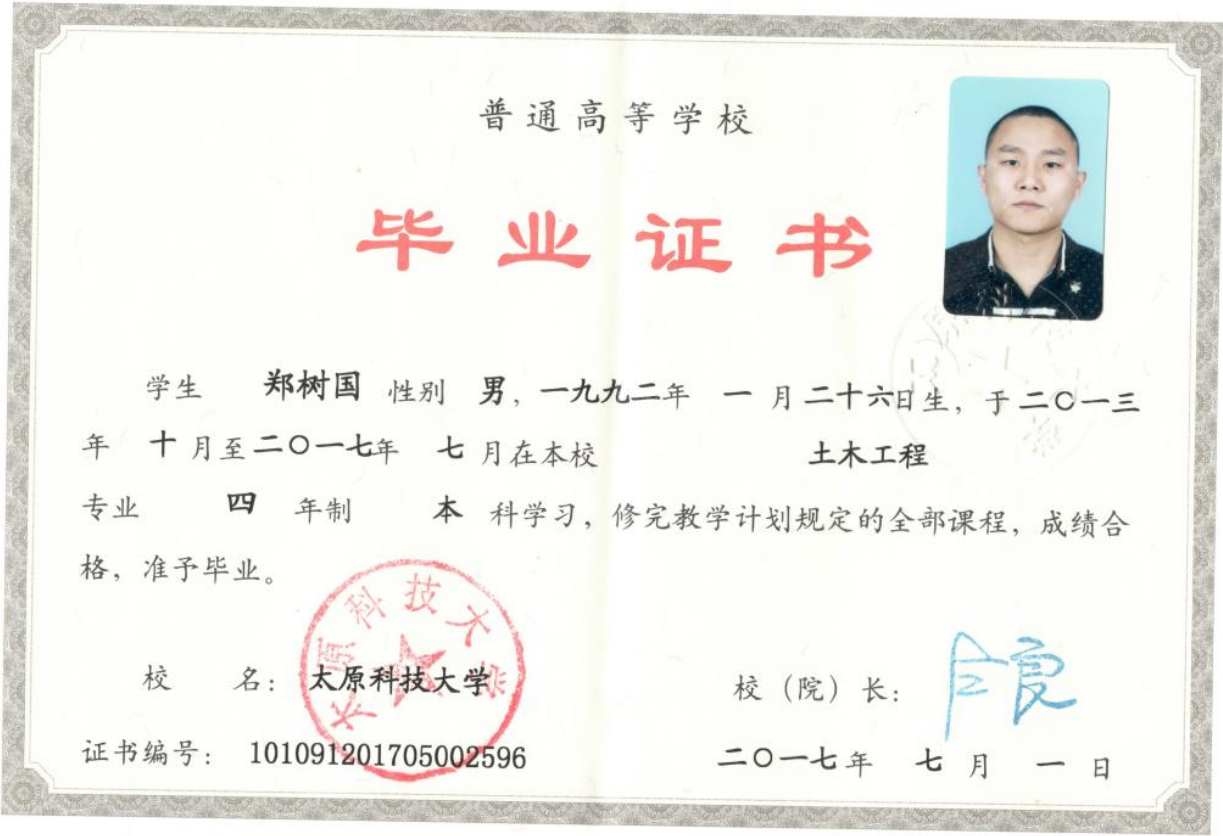 普通高等学校
毕业证书
学生 郑树国 性别 男，一九九二年 一 月二十六日生，于二〇一三
年 十月至二〇一七年 七月在本校 土木工程
专业 四 年制 本 科学习，修完教学计划规定的全部课程，成绩合
格，准予毕业。
太原科技大学
校 名：太原科技大学
校（院）长：
证书编号：101091201705002596
二〇一七年 七月 一日